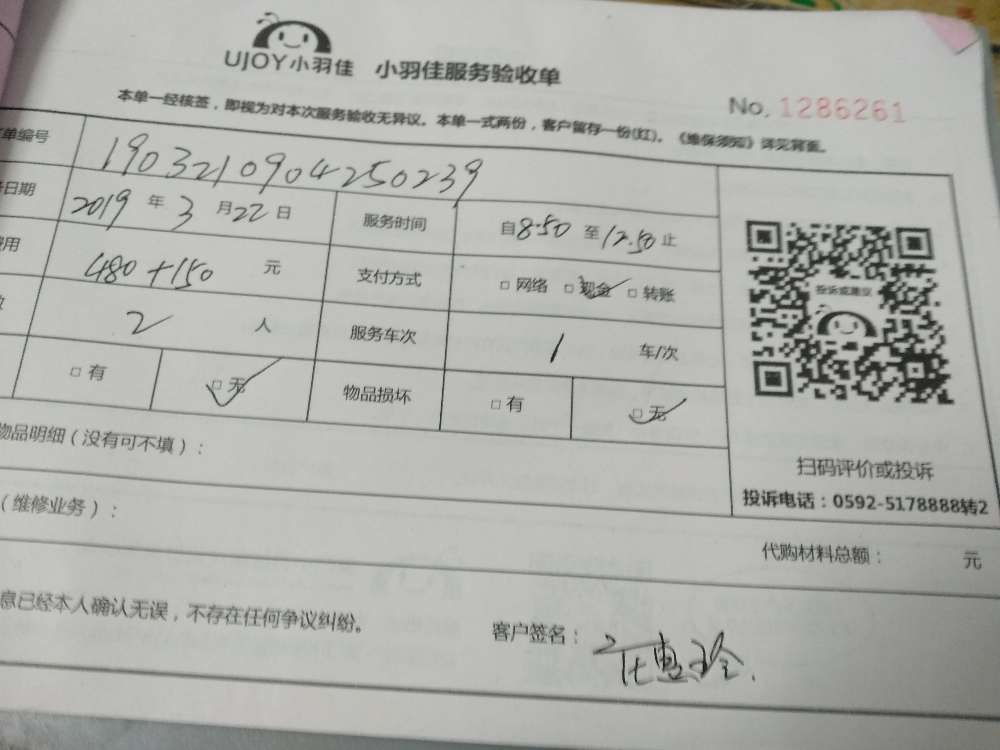 UJOY小羽佳 小羽佳服务验收单
No. 1286261
本单一经核签，即视为对本次服务验收无异议。本单一式两份，客户留存一份(红)。《维保须知》详见背面。
单编号 1903210904250239
日期 2019 年 3 月 22 日 服务时间 自 8:50 至 12:50 止
用 480+150 元 支付方式 □ 网络 □ 现金 □ 转账
2 人 服务车次 1 车/次
□ 有 □ 无 物品损坏 □ 有 □ 无
投诉或建议
扫码评价或投诉
投诉电话：0592-5178888转2
物品明细（没有可不填）：
（维修业务）：
代购材料总额： 元
息已经本人确认无误，不存在任何争议纠纷。
客户签名：